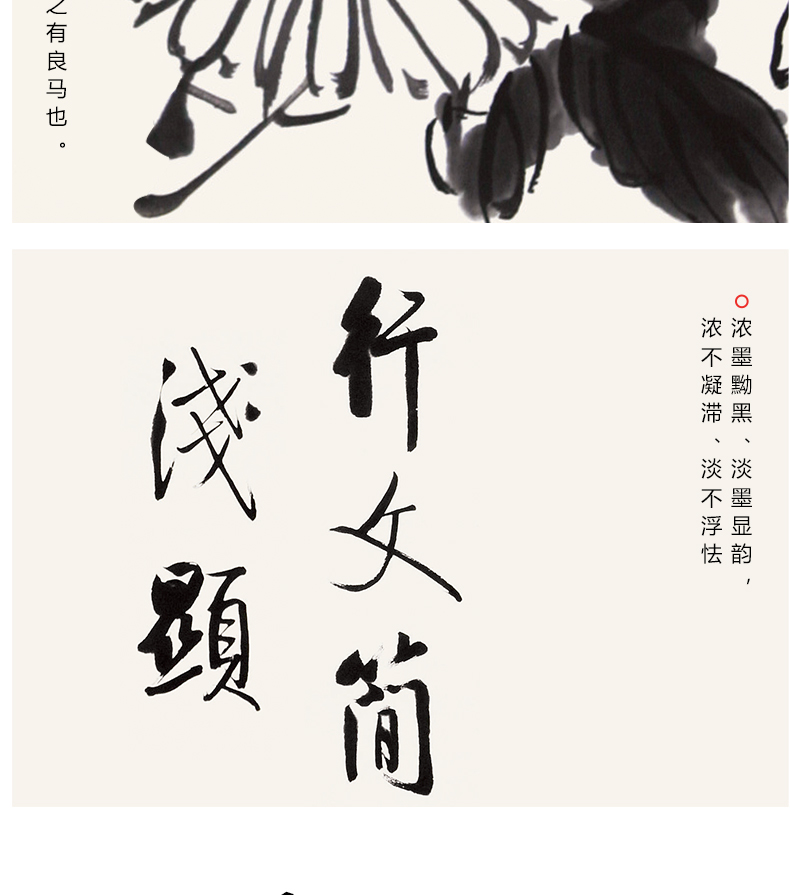 之有良马也。
浓墨黝黑、淡墨显韵，
浓不凝滞、淡不浮怯
行文简
淺顯